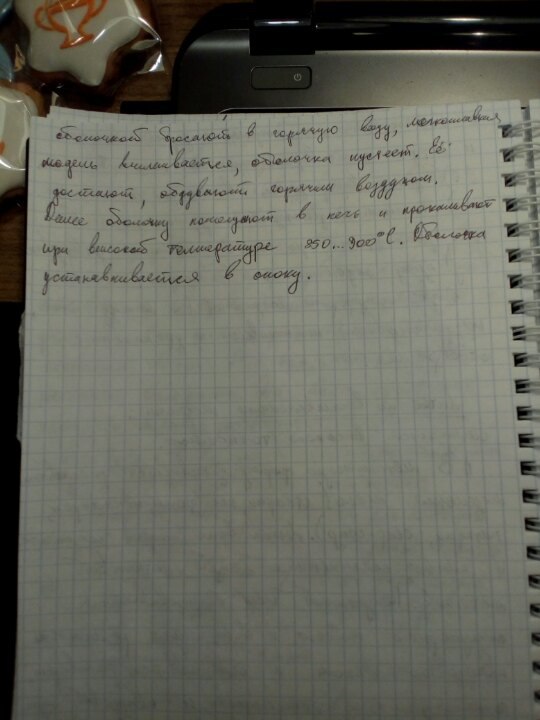 оболочкой бросают в горячую воду, легкоплавкая
модель выплавляется, оболочка пустеет. Её
достают, обдувают горячим воздухом.
Далее оболочку помещают в печь и прокаливают
при высокой температуре 850...900°С. Оболочка
устанавливается в опоку.